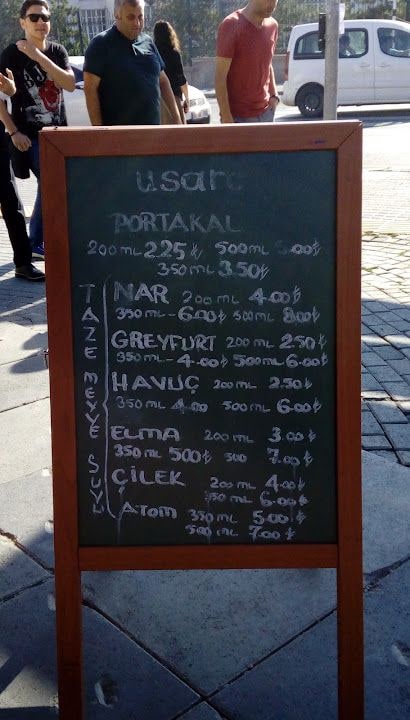 usare
PORTAKAL
200 mL 2.25 ₺ 500 mL 5.00₺
350 mL 3.50₺
TAZE MEYVE SUYU
NAR 200 mL 4.00₺
350 mL - 6.00₺ 500 mL 8.00₺
GREYFURT 200 mL 2.50₺
350 mL - 4.00₺ 500 mL 6.00₺
HAVUÇ 200 mL 2.50₺
350 mL 4.00 500 mL 6.00₺
ELMA 200 mL 3.00₺
350 mL 500₺ 500 7.00₺
ÇİLEK 200 mL 4.00₺
350 mL 6.00₺
ATOM 350 mL 5.00₺
500 mL 7.00₺